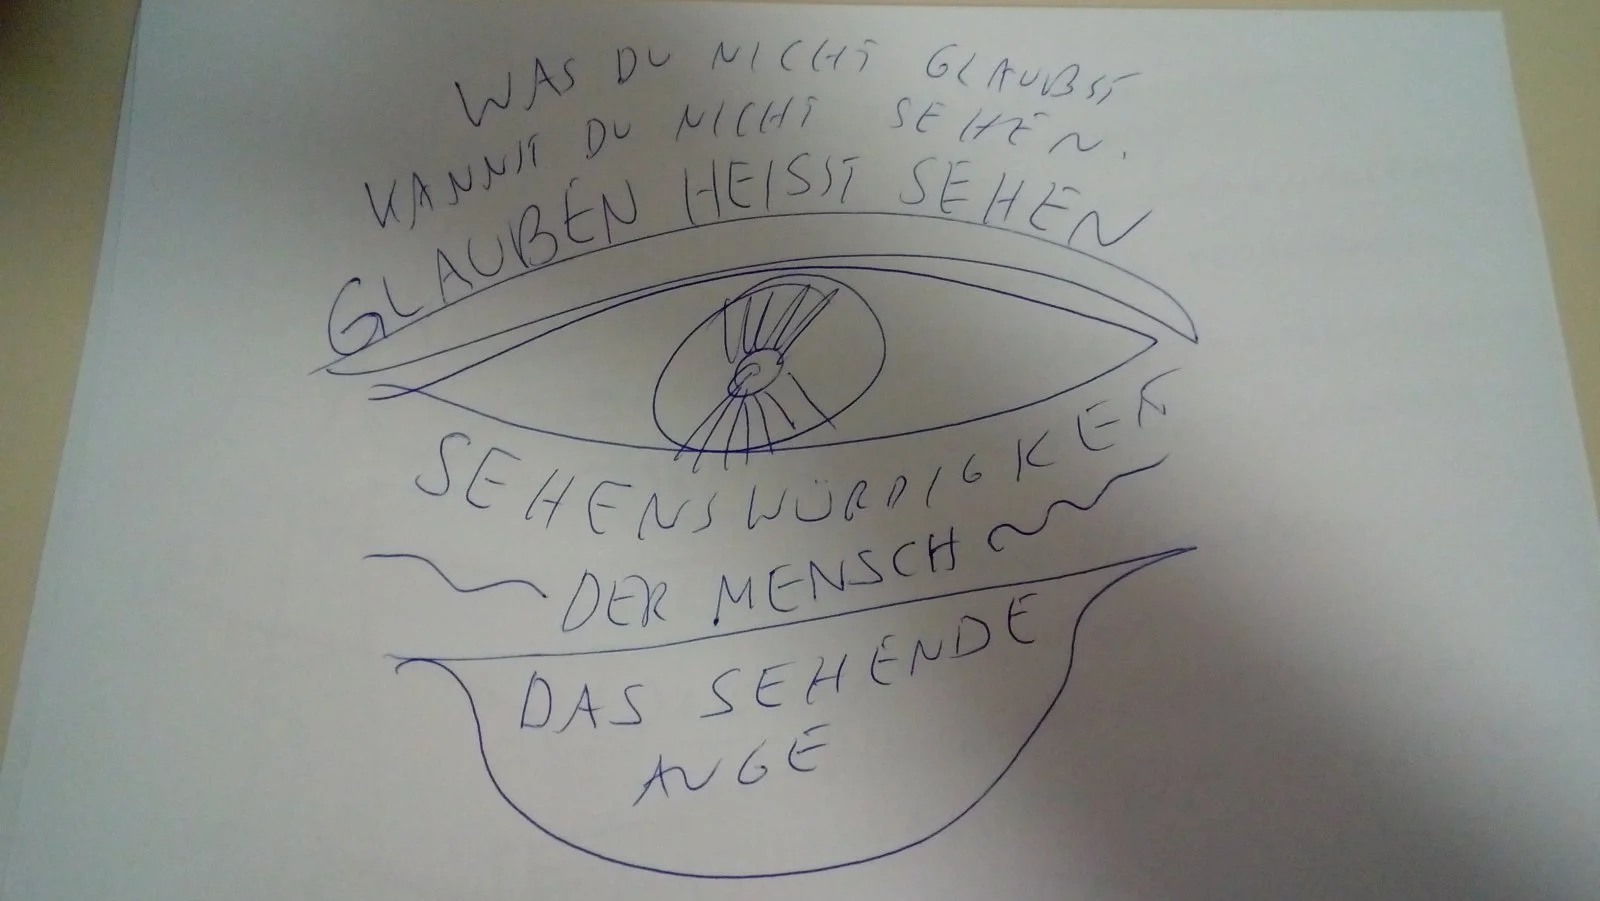 WAS DU NICHT GLAUBST
KANNST DU NICHT SEHEN.
GLAUBEN HEISST SEHEN
SEHENSWÜRDIGKEIT
DER MENSCH
DAS SEHENDE
AUGE